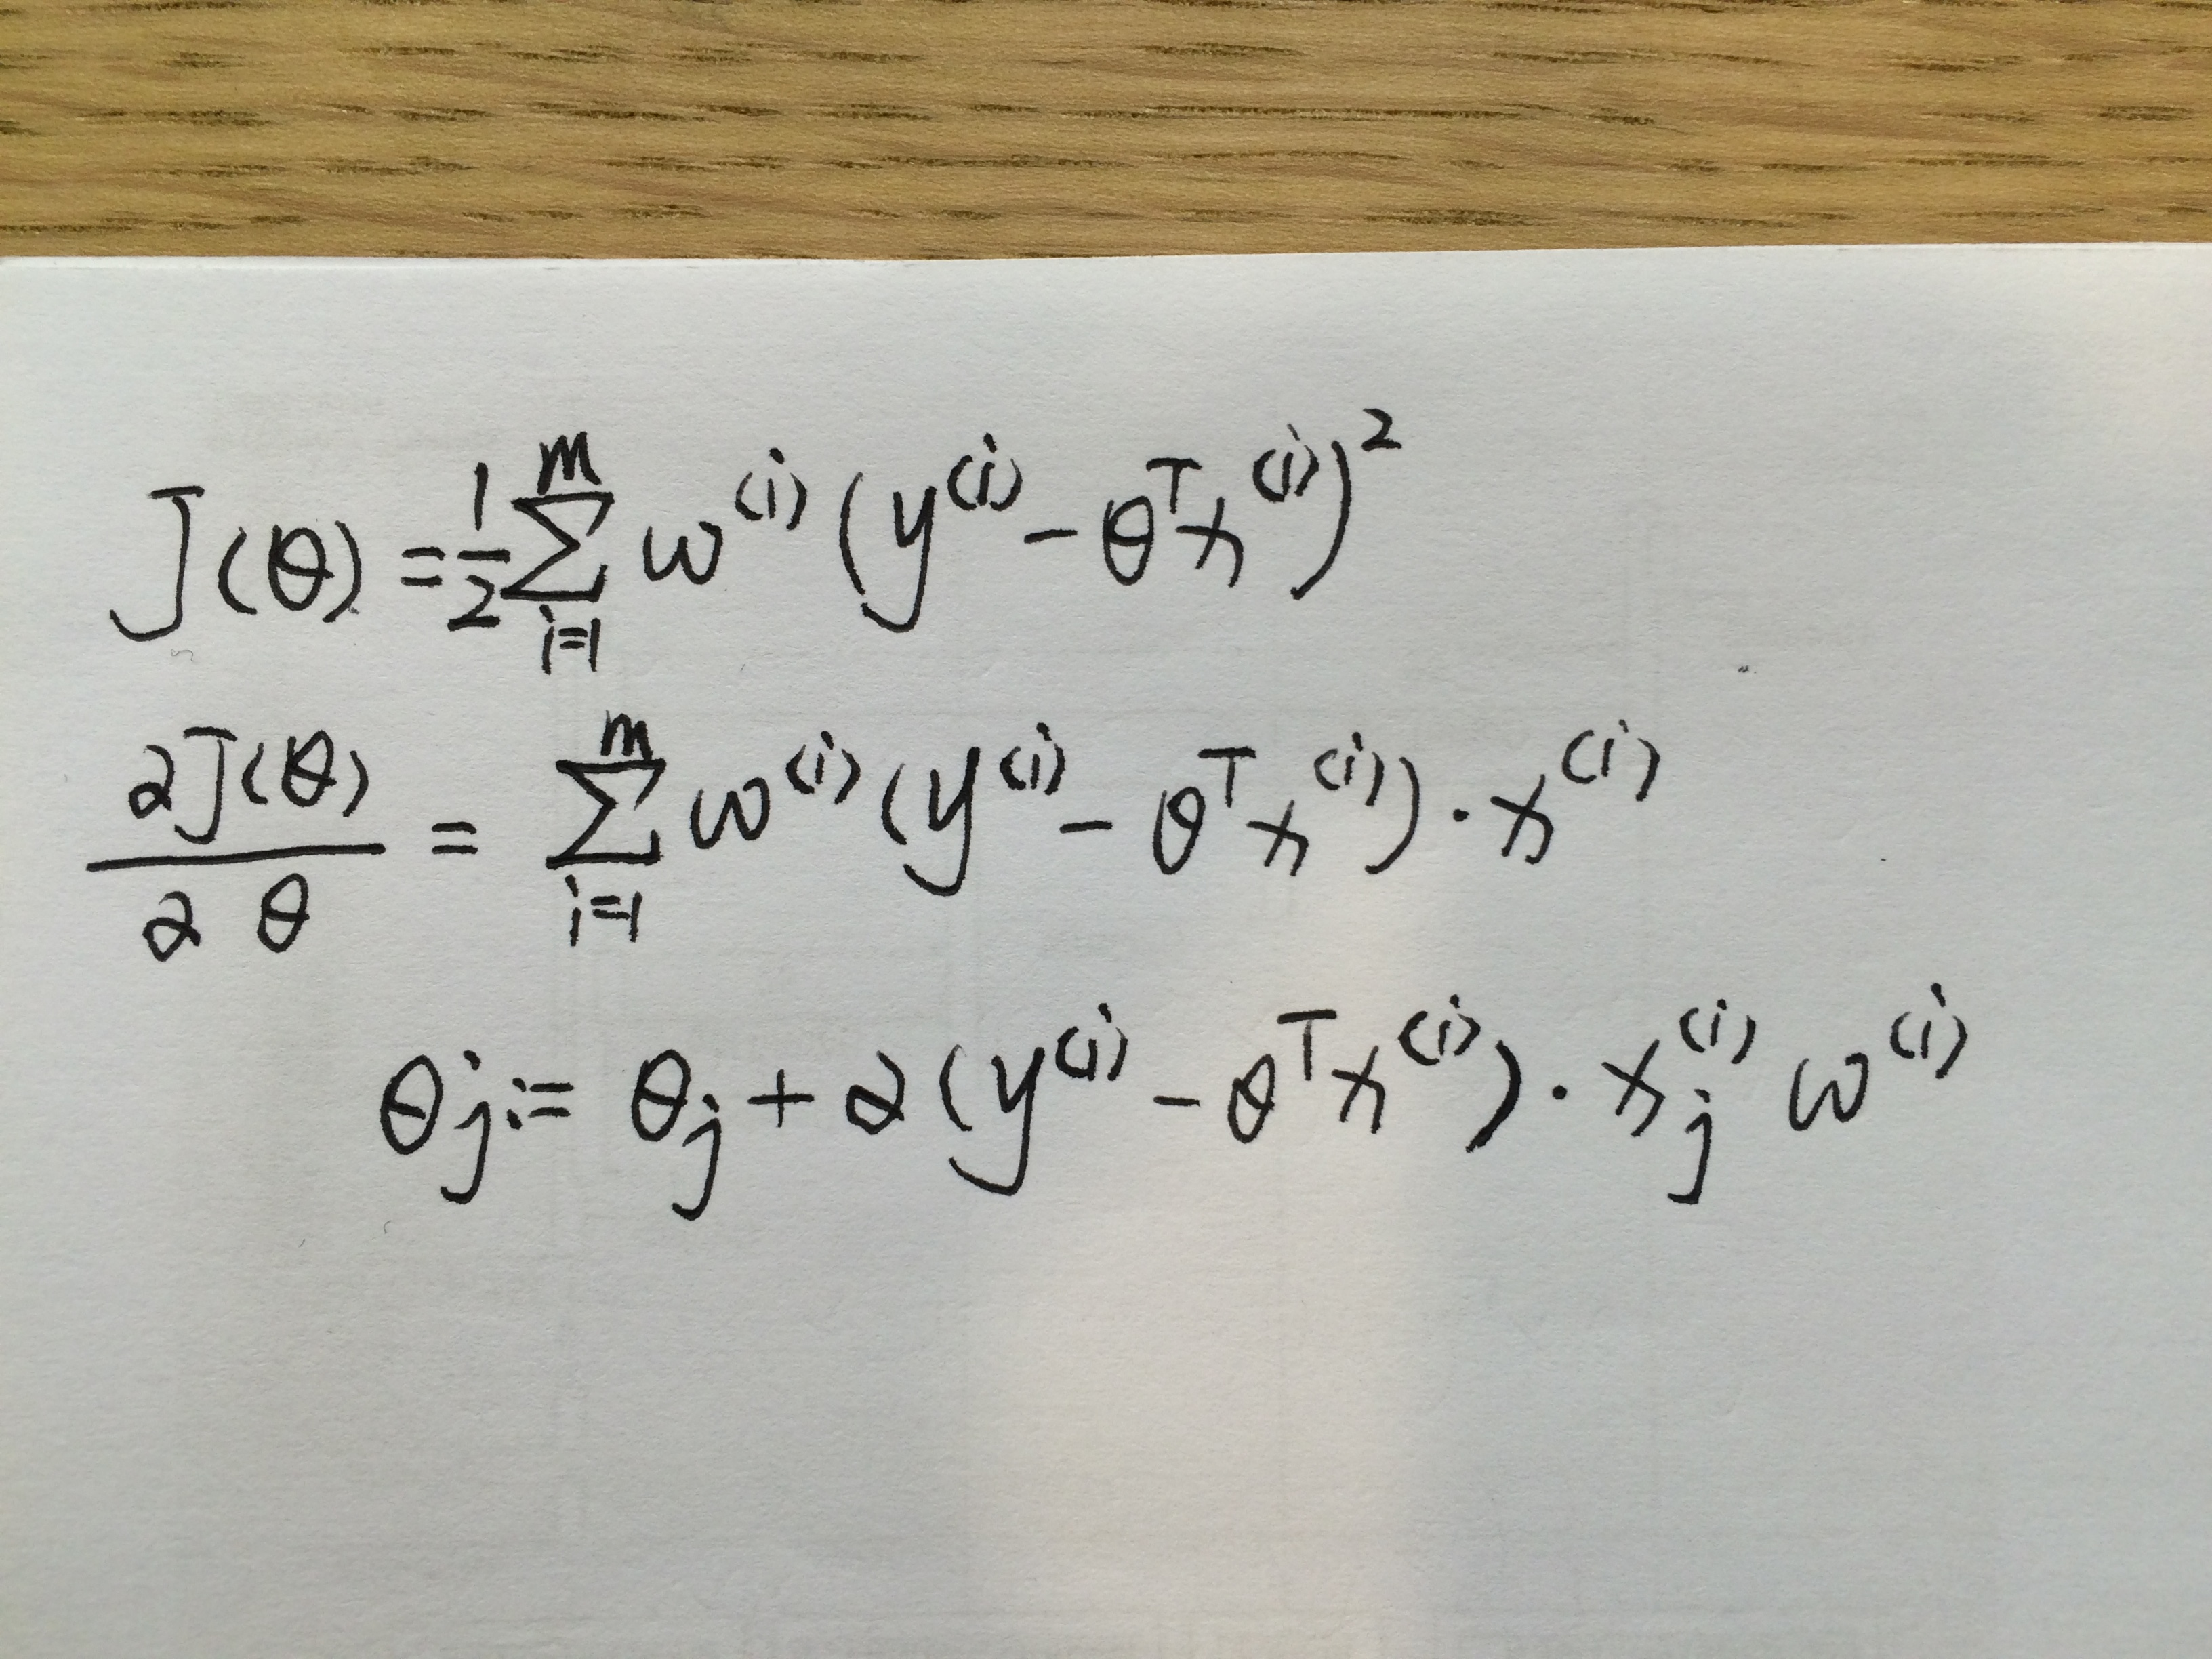 J(θ) = 1/2 Σ_{i=1}^{m} w^{(i)} (y^{(i)} - θ^T x^{(i)})^2
∂J(θ)/∂θ = Σ_{i=1}^{m} w^{(i)} (y^{(i)} - θ^T x^{(i)}) · x^{(i)}
θ_j := θ_j + α (y^{(i)} - θ^T x^{(i)}) · x_j^{(i)} w^{(i)}